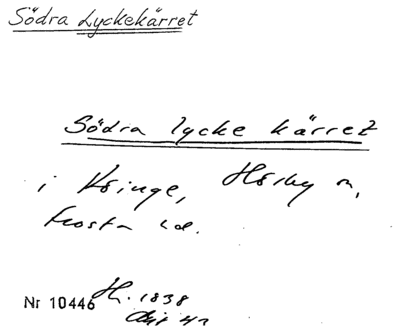 Södra Lyckekärret
Södra lycke kärret
i Kringe, Hörby sn,
Frosta hd.
Nr 10446 H. 1838
Akt 42